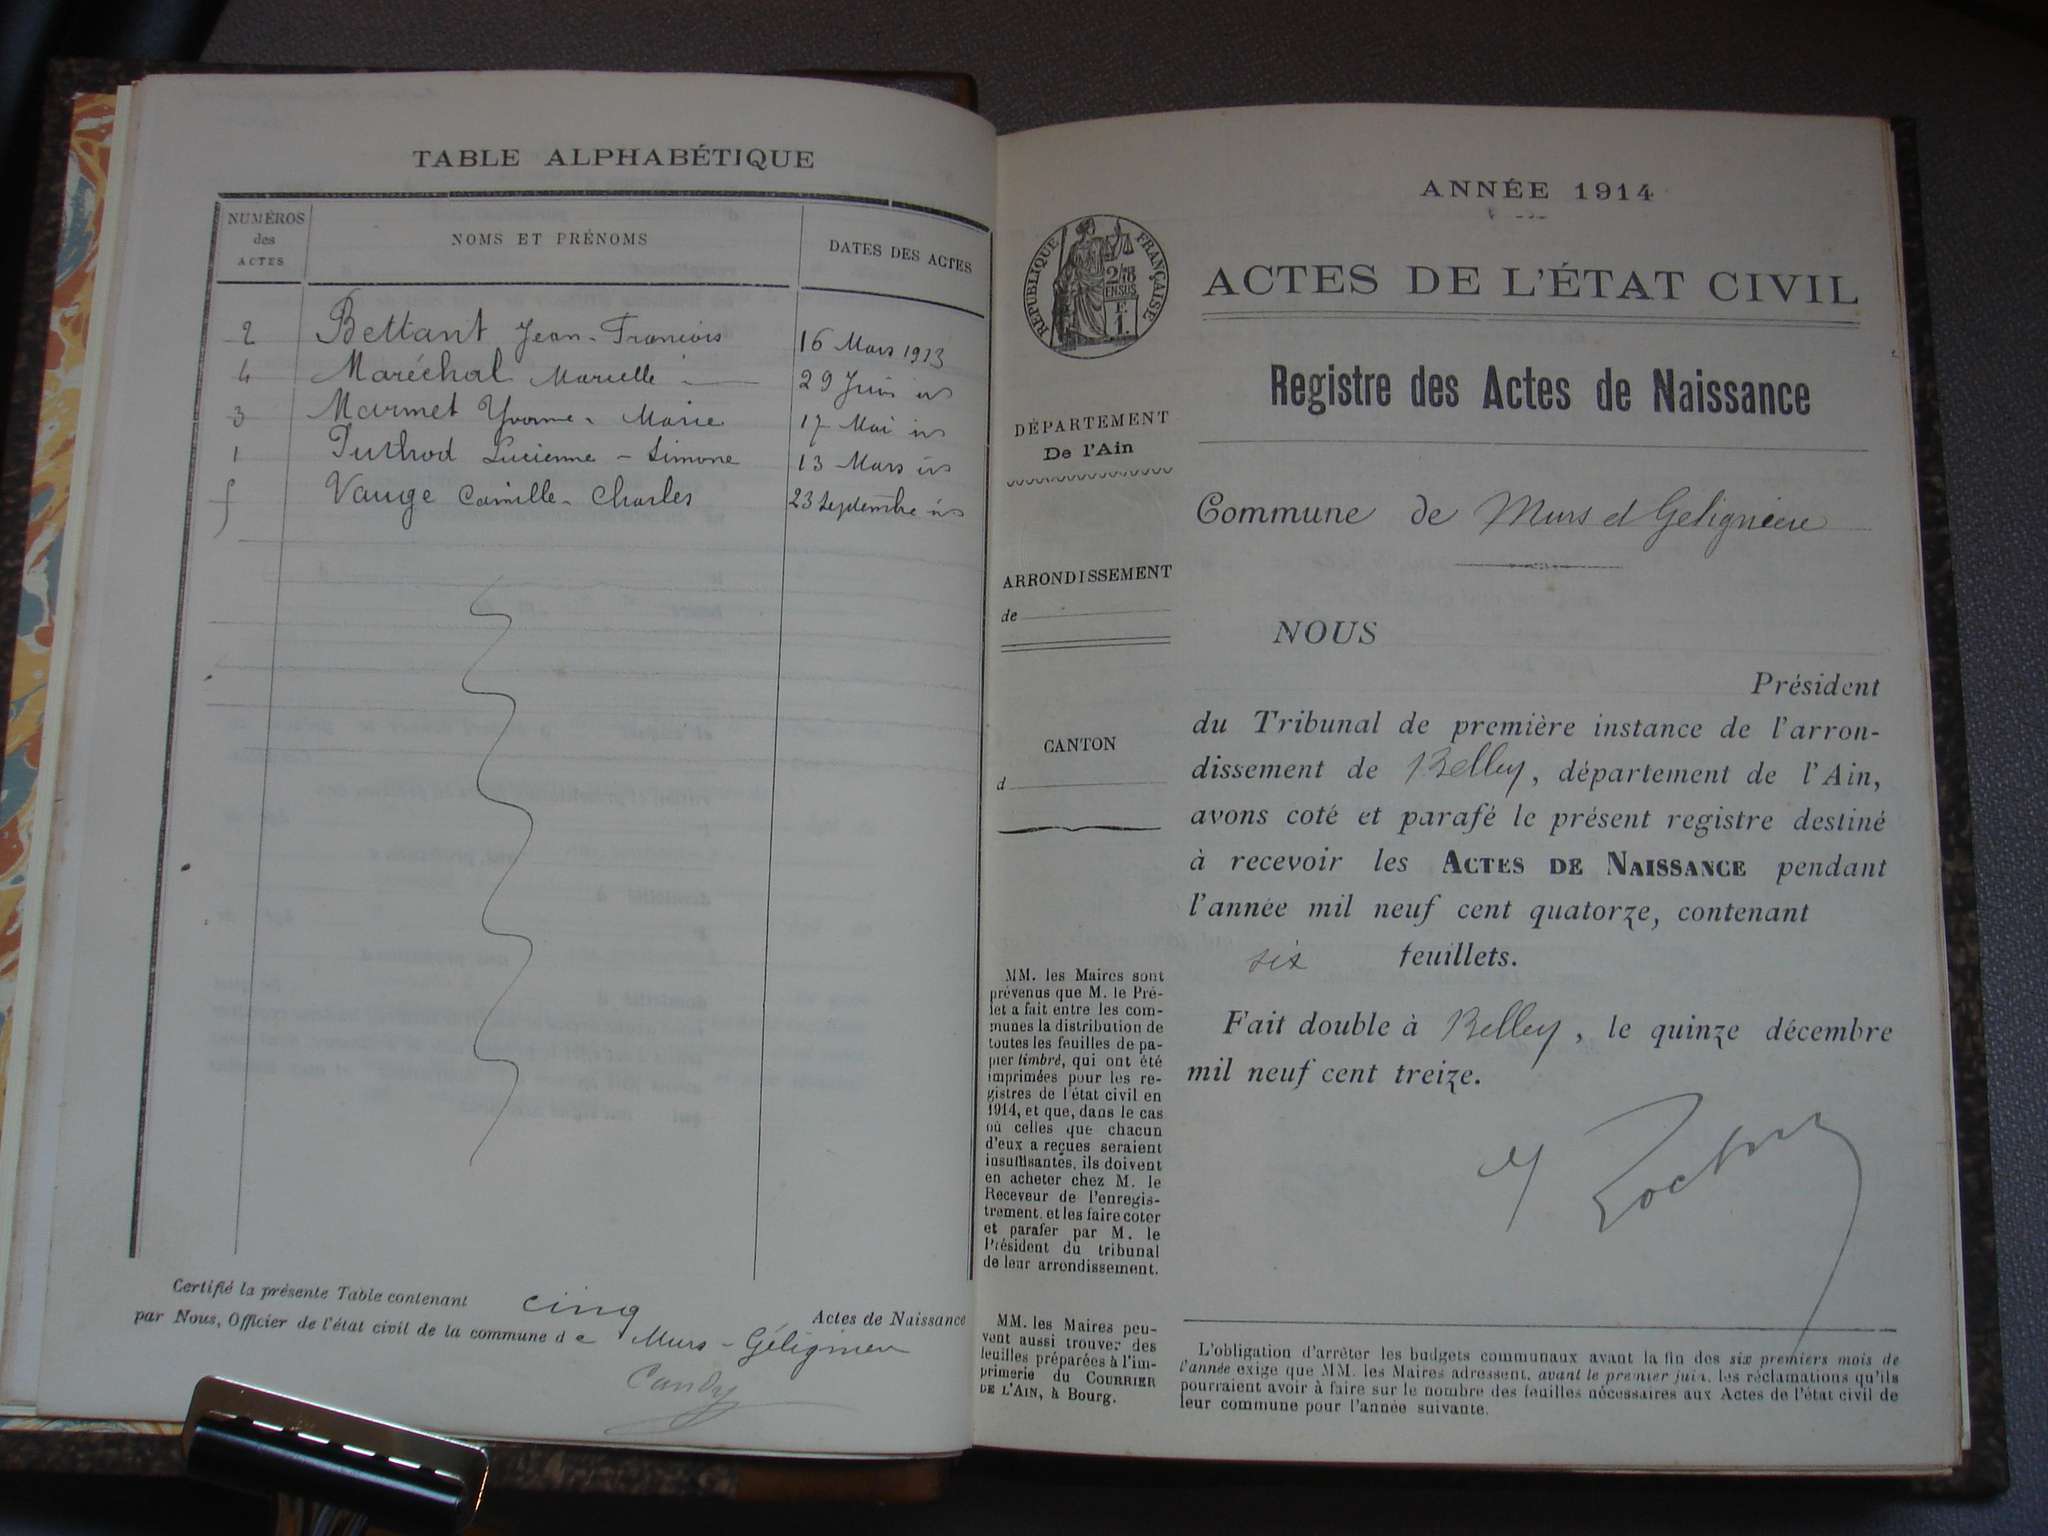 TABLE ALPHABÉTIQUE
NUMÉROS des ACTES
NOMS ET PRÉNOMS
DATES DES ACTES
2 Bettant Jean-François 16 Mars 1913
4 Maréchal Marcelle 29 Juin
3 Marmet Yvonne-Marie 17 Mai
1 Puthod Lucienne-Simone 13 Mars
5 Vauge Camille-Charles 23 Septembre
Certifié la présente Table contenant cinq Actes de Naissance
par Nous, Officier de l'état civil de la commune de Murs-Gélignieu
Candy
ANNÉE 1914
RÉPUBLIQUE FRANÇAISE
F. 1.
ACTES DE L'ÉTAT CIVIL
Registre des Actes de Naissance
DÉPARTEMENT
De l'Ain
Commune de Murs et Geligniere
ARRONDISSEMENT
de
CANTON
d
NOUS
Président
du Tribunal de première instance de l'arron-
dissement de Belley, département de l'Ain,
avons coté et parafé le présent registre destiné
à recevoir les ACTES DE NAISSANCE pendant
l'année mil neuf cent quatorze, contenant
six feuillets.
Fait double à Belley, le quinze décembre
mil neuf cent treize.
MM. les Maires sont
prévenus que M. le Pré-
fet a fait entre les com-
munes la distribution de
toutes les feuilles de pa-
pier timbré, qui ont été
imprimées pour les re-
gistres de l'état civil en
1914, et que, dans le cas
où celles que chacun
d'eux a reçues seraient
insuffisantes, ils doivent
en acheter chez M. le
Receveur de l'enregis-
trement, et les faire coter
et parafer par M. le
Président du tribunal
de leur arrondissement.
MM. les Maires peu-
vent aussi trouver des
feuilles préparées à l'im-
primerie du COURRIER
DE L'AIN, à Bourg.
L'obligation d'arrêter les budgets communaux avant la fin des six premiers mois de
l'année exige que MM. les Maires adressent, avant le premier juin, les réclamations qu'ils
pourraient avoir à faire sur le nombre des feuilles nécessaires aux Actes de l'état civil de
leur commune pour l'année suivante.